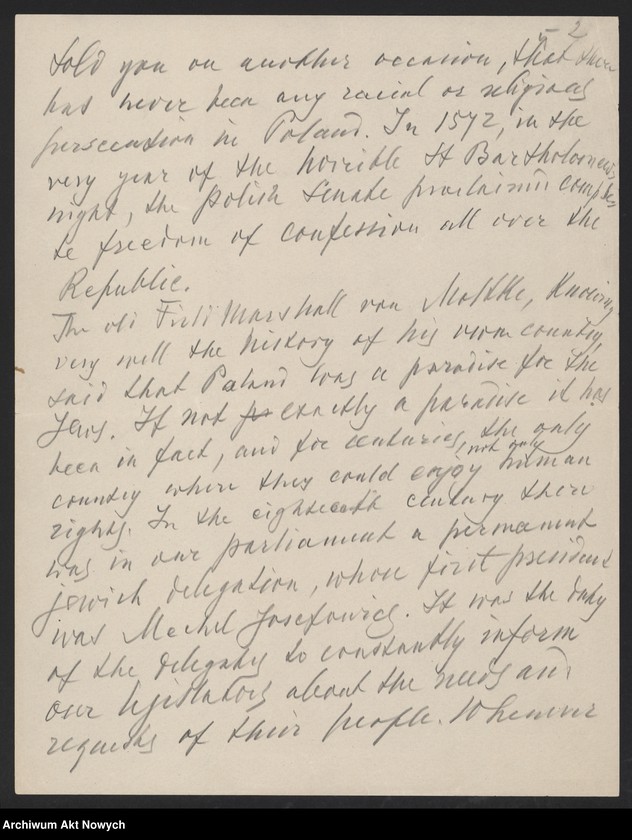 2
told you on another occasion, that there
has never been any racial or religious
persecution in Poland. In 1572, in the
very year of the horrible St Bartholomew's
night, the Polish Senate proclaimed comple
te freedom of confession all over the
Republic.
The old Field Marshall von Moltke, knowing
very well the history of his own country,
said that Poland was a paradise for the
Jews. If not exactly a paradise it has
been in fact, and for centuries, the only
country where they could enjoy not only human
rights. In the eighteenth century there
was in our parliament a permanent
jewish delegation, whose first president
was Mechel Josefowicz. It was the duty
of the delegates to constantly inform
our legislators about the needs and
requests of their people. Whenever
Archiwum Akt Nowych